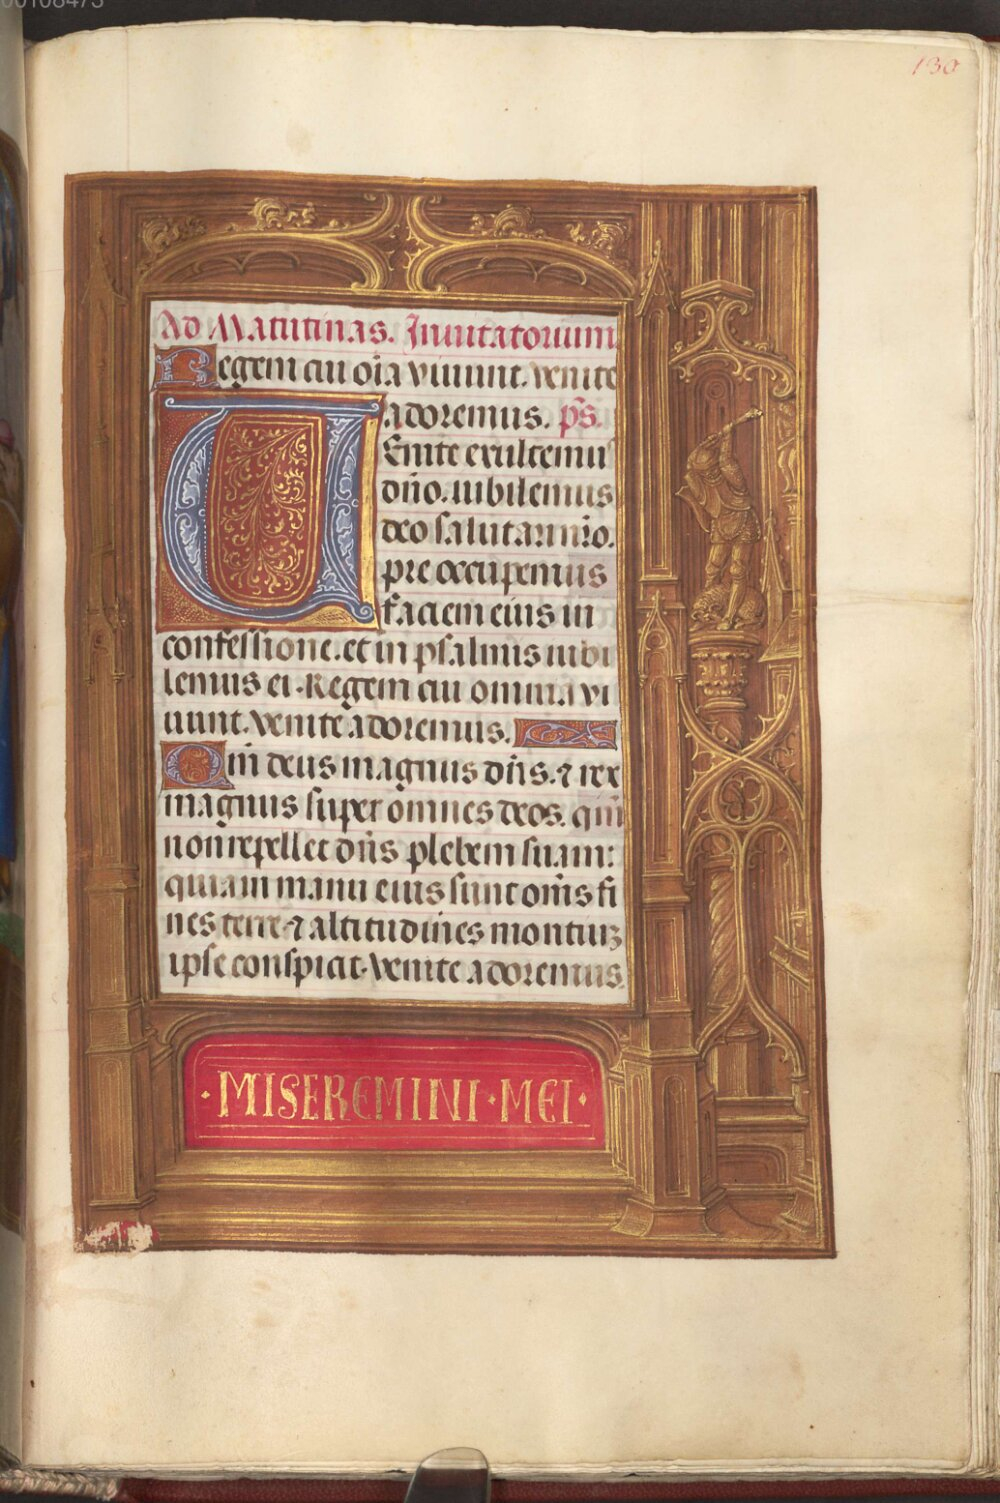 00108473
130
Ad Matutinas. Inuitatorium
Regem cui oīa viuunt. venite
adoremus. ps̄.
Venite exultemus
dn̄o. iubilemus
deo salutari nr̄o.
pre occupemus
faciem eius in
confessione. et in psalmis iubi
lemus ei. Regem cui omnia vi
uunt. venite adoremus.
Qm̄ deus magnus dn̄s. ⁊ rex
magnus super omnes deos. qm̄
non repellet dn̄s plebem suam:
quia in manu eius sunt om̄s fi
nes terre ⁊ altitudines montiuꝫ
ipse conspicit. venite adoremus.
·MISEREMINI·MEI·